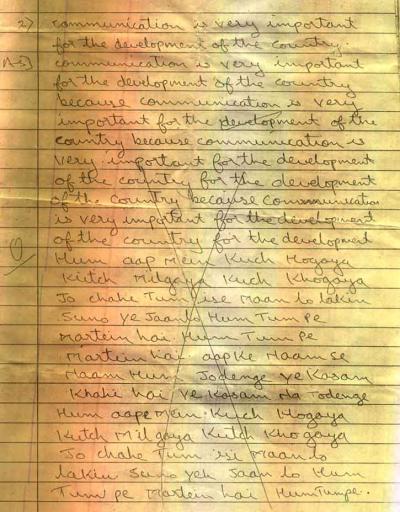 2) communication is very important
for the development of the country.
A-3) communication is very important
for the development of the country
because communication is very
important for the development of the
country because communication is
very important for the development
of the country for the development
of the country because communication
is very important for the development
of the country for the development
0 Hum aap mein Kuch Hogaya
Kutch Milgaya Kuch Khogaya
Jo chahe Tum ise Maan lo lakin
Suno ye Jaanlo Hum Tum pe
Martein hai. Hum Tum pe
Martein hai. aap Ke Naam se
Naam Hum Jodenge ye Kasam
Khahi hai ye Kasam Na Todenge
Hum aape Mein Kuch Hogaya
Kutch Milgaya Kutch Khogaya
Jo chahe Tum isi Maan lo
lakin Suno yeh Jaan lo Hum
Tum pe Martein hai Hum Tumpe.